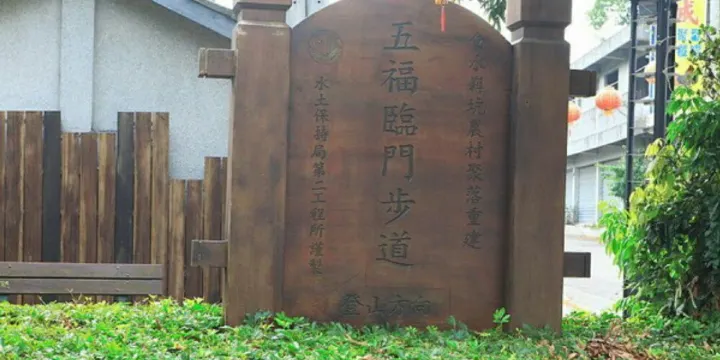 冷水與坑農村聚落重建
五福臨門步道
水土保持局第二工程所謹製
登山方向